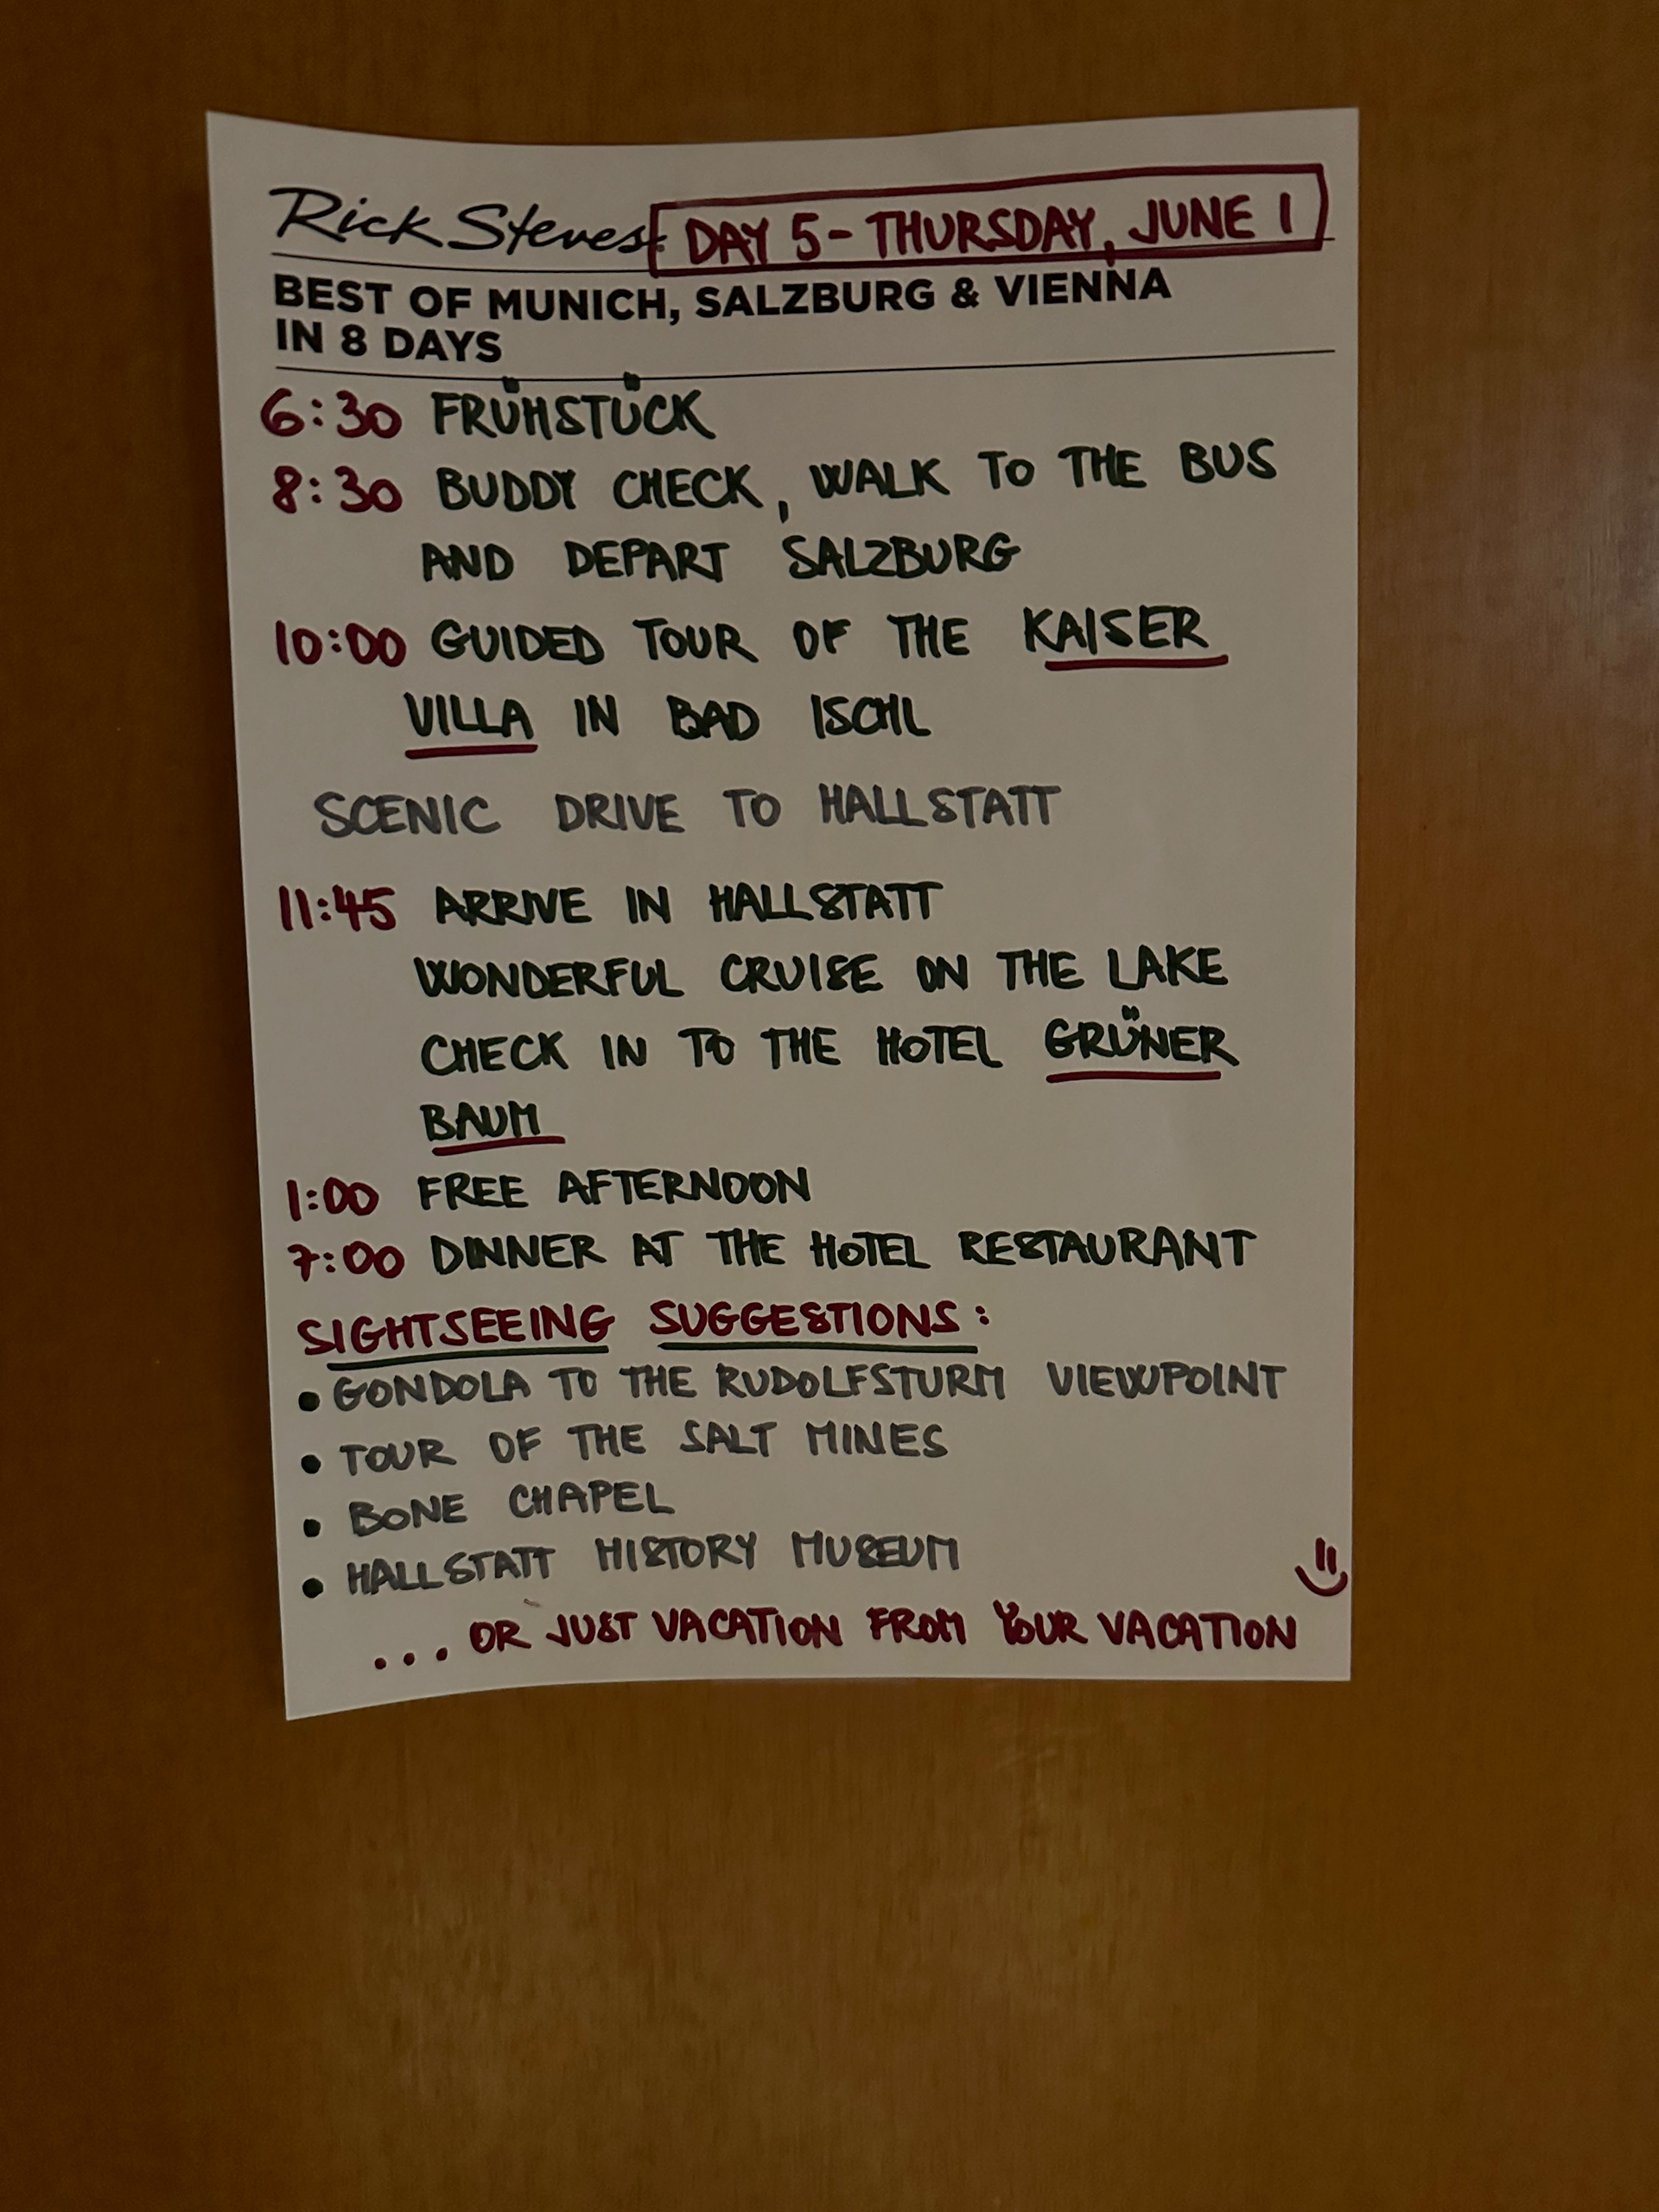 Rick Steves
DAY 5 - THURSDAY, JUNE 1
BEST OF MUNICH, SALZBURG & VIENNA
IN 8 DAYS
6:30 FRÜHSTÜCK
8:30 BUDDY CHECK, WALK TO THE BUS
AND DEPART SALZBURG
10:00 GUIDED TOUR OF THE KAISER
VILLA IN BAD ISCHL
SCENIC DRIVE TO HALLSTATT
11:45 ARRIVE IN HALLSTATT
WONDERFUL CRUISE ON THE LAKE
CHECK IN TO THE HOTEL GRÜNER
BAUM
1:00 FREE AFTERNOON
7:00 DINNER AT THE HOTEL RESTAURANT
SIGHTSEEING SUGGESTIONS:
• GONDOLA TO THE RUDOLFSTURM VIEWPOINT
• TOUR OF THE SALT MINES
• BONE CHAPEL
• HALLSTATT HISTORY MUSEUM
... OR JUST VACATION FROM YOUR VACATION